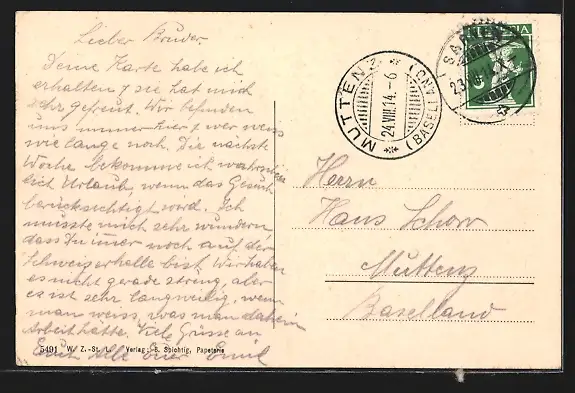 Lieber Bruder.
Deine Karte habe ich
erhalten & sie hat mich
sehr gefreut. Wir befinden
uns immer hier & wer weiss
wie lange noch. Die nächste
Woche bekomme ich wahrschein
lich Urlaub, wenn das Gesuch
berücksichtigt wird. Ich
musste mich sehr wundern
dass Du imer noch auf der
Schweizerhalle bist. Wir haben
es nicht gerade streng, aber
es ist sehr langweilig, wenn
man weiss, was man daheim
Arbeit hätte. Viele Grüsse an
Euch Alle Euer Emil
5491 W. Z.-St. L. Verlag: S. Spichtig, Papeterie
MUTTENZ
24.VIII.14.-6
(BASEL LAND)
SARNEN
23.VIII.
HELVETIA
5
Herrn
Hans Schorr
Muttenz
Baselland